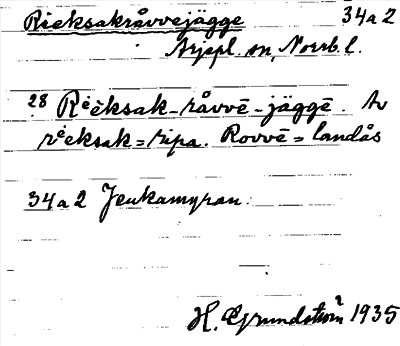 Rieksakråvvejägge 34a2
Arjepl. sn, Norrb. l.
28 Riĕksak-råvvē-jäggē. Av
riĕksak = ripa. Rovvē = landås
34a2 Jeukamyran.
H. Grundström 1935